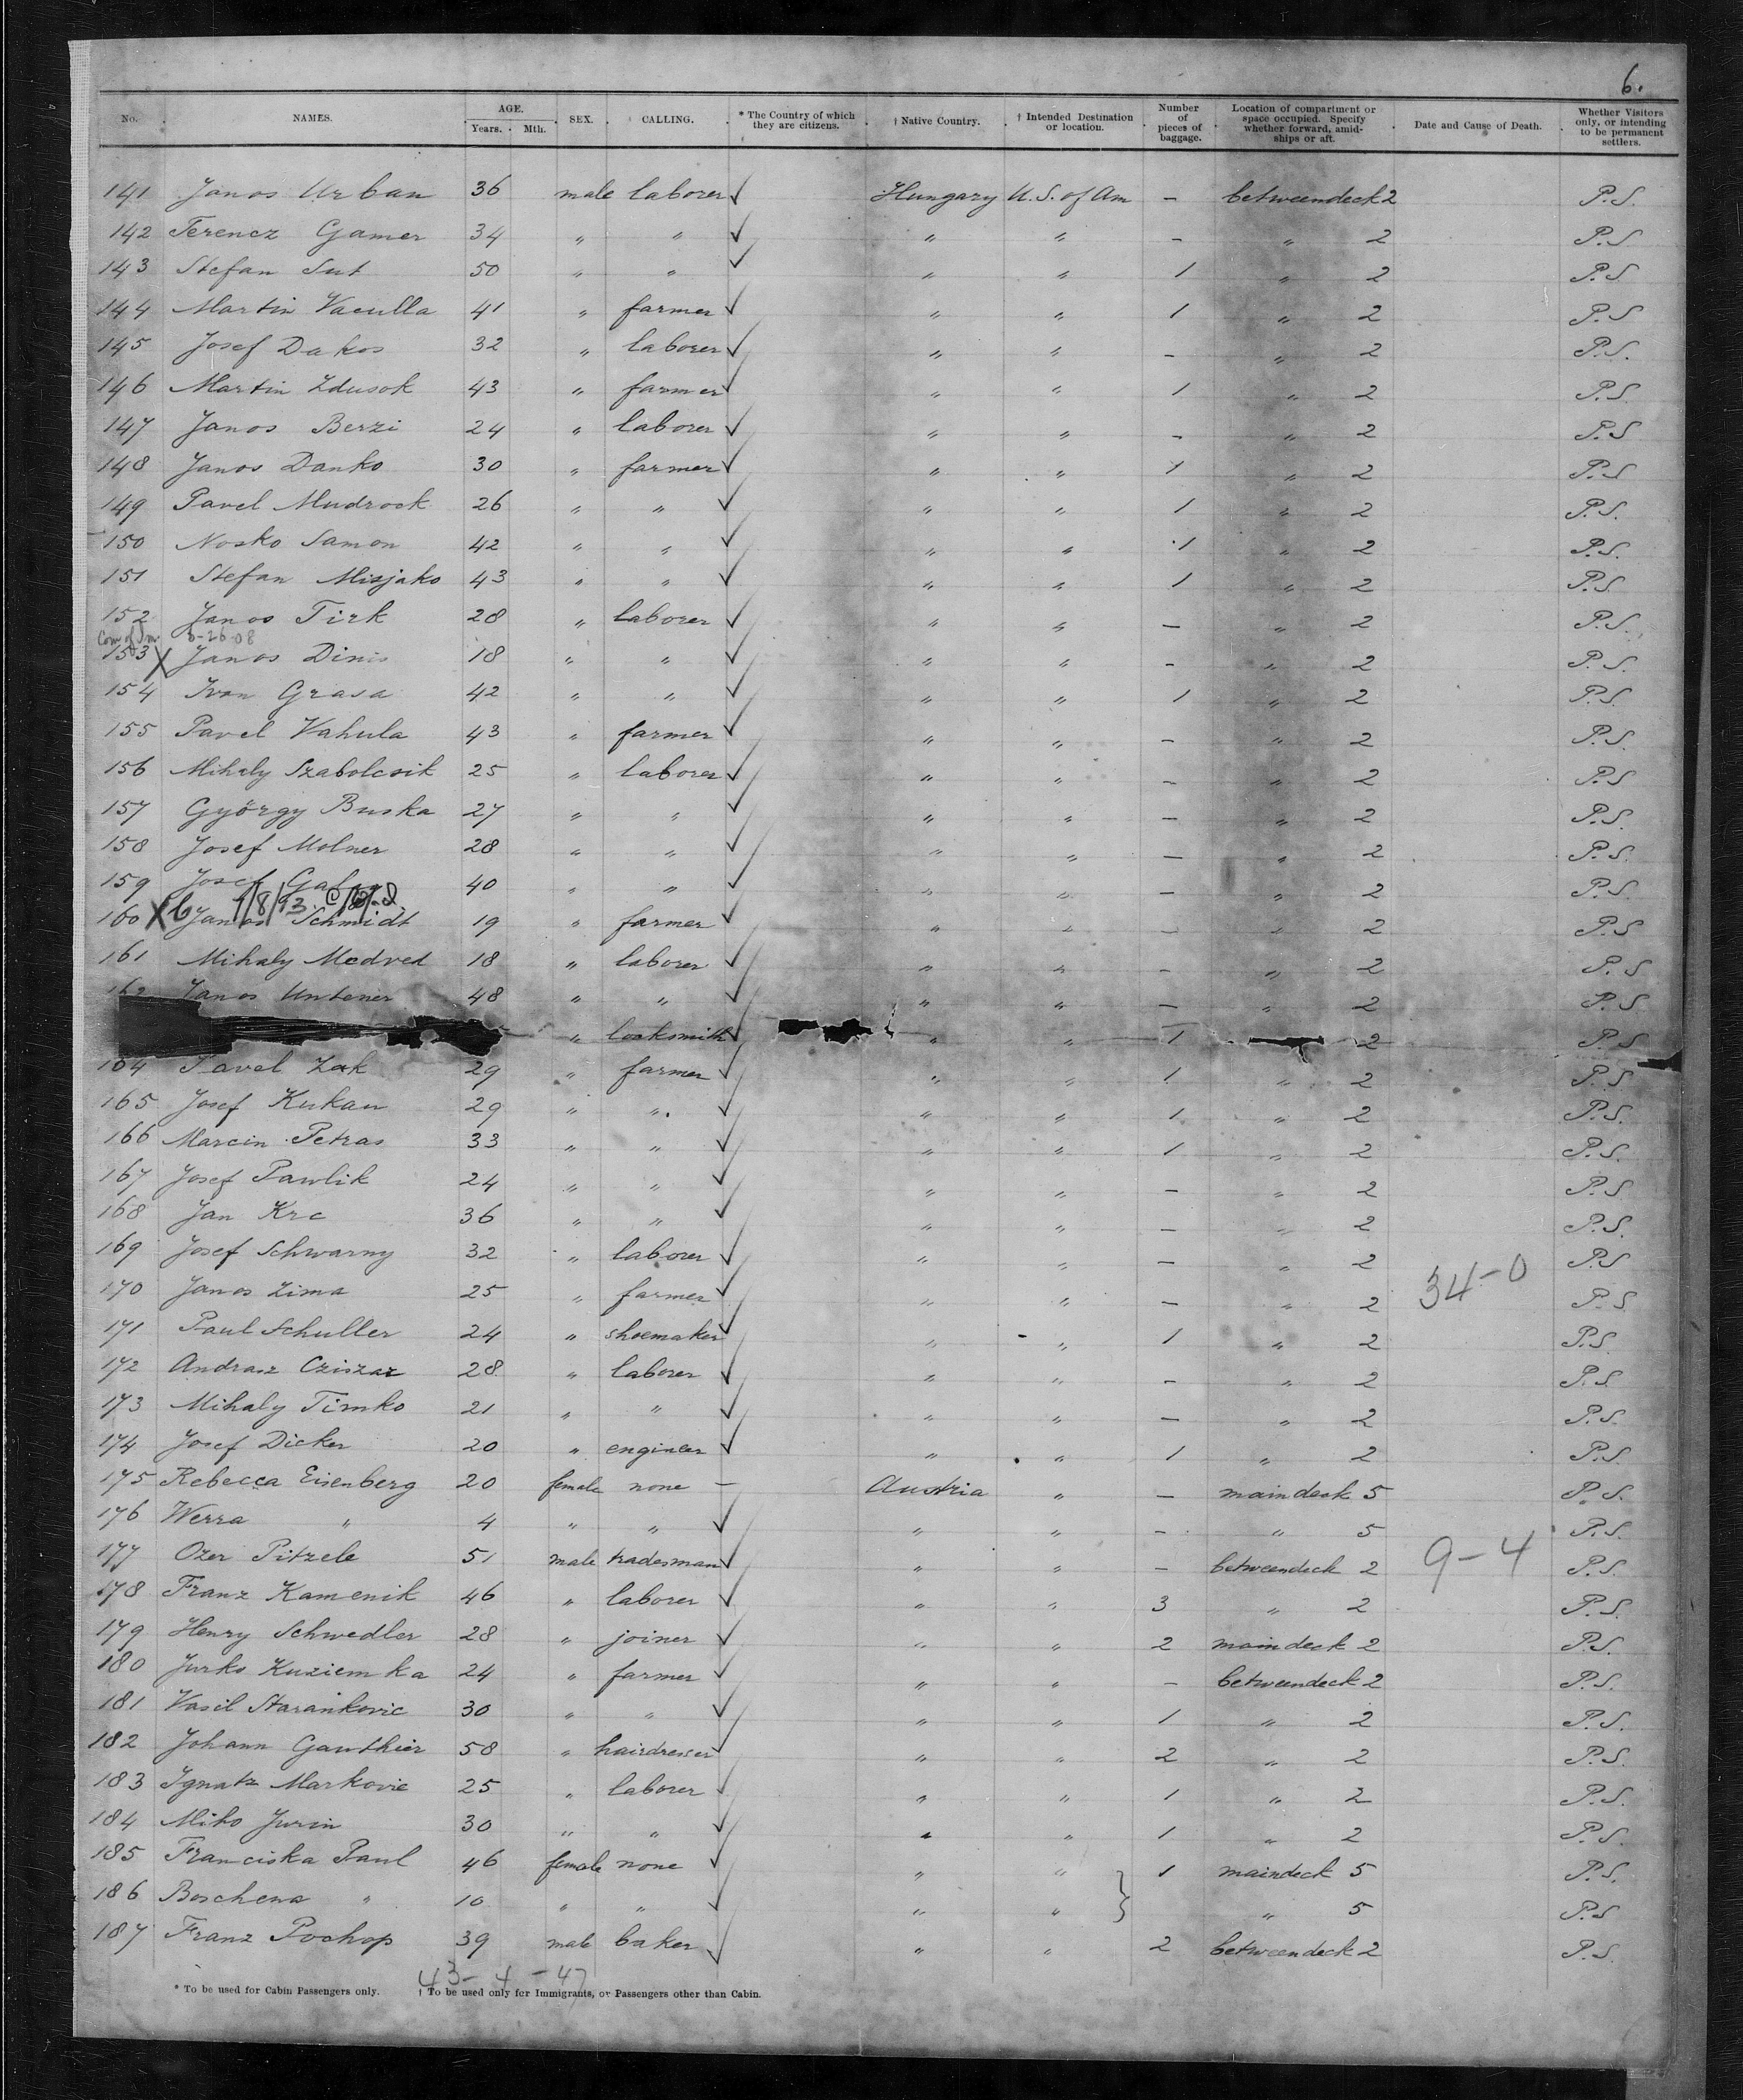 6.
No. NAMES. AGE. Years. Mth. SEX. CALLING. * The Country of which they are citizens. † Native Country. † Intended Destination or location. Number of pieces of baggage. Location of compartment or space occupied. Specify whether forward, amidships or aft. Date and Cause of Death. Whether Visitors only, or intending to be permanent settlers.
141 Janos Urban 36 male laborer ✓ Hungary U.S. of Am — betweendeck 2 P.S.
142 Ferencz Gamer 34 " " ✓ " " — " 2 P.S
143 Stefan Sut 50 " " ✓ " " 1 " 2 P.S
144 Martin Vaculla 41 " farmer ✓ " " 1 " 2 P.S
145 Josef Dakos 32 " laborer ✓ " " — " 2 P.S.
146 Martin Zdusok 43 " farmer ✓ " " 1 " 2 P.S.
147 Janos Berzi 24 " laborer ✓ " " — " 2 P.S
148 Janos Danko 30 " farmer ✓ " " 1 " 2 P.S
149 Pavel Mudrock 26 " " ✓ " " 1 " 2 P.S.
150 Nosko Samon 42 " " ✓ " " 1 " 2 P.S.
151 Stefan Misjako 43 " " ✓ " " 1 " 2 P.S.
152 Janos Tirk 28 " laborer ✓ " " — " 2 P.S.
Com of Im. 8-26-08
153 X Janos Dinis 18 " " ✓ " " — " 2 P.S.
154 Ivan Grasa 42 " " ✓ " " 1 " 2 P.S.
155 Pavel Vahula 43 " farmer ✓ " " — " 2 P.S.
156 Mihaly Szabolcsik 25 " laborer ✓ " " — " 2 P.S
157 György Buska 27 " " ✓ " " — " 2 P.S.
158 Josef Molner 28 " " ✓ " " — " 2 P.S.
159 Josef 40 " " ✓ " " — " 2 P.S.
160 X Janos Schmidt 19 " farmer ✓ " " — " 2 P.S
161 Mihaly Medved 18 " laborer ✓ " " — " 2 P.S
162 Janos Untener 48 " " ✓ " " — " 2 P.S
" locksmith ✓ " " 1 2 P.S
164 Pavel Zak 29 " farmer ✓ " " 1 " 2 P.S
165 Josef Kukan 29 " " ✓ " " 1 " 2 P.S.
166 Marcin Petras 33 " " ✓ " " 1 " 2 P.S.
167 Josef Pawlik 24 " " ✓ " " — " 2 P.S
168 Jan Krc 36 " " ✓ " " — " 2 P.S.
169 Josef Schwarny 32 " laborer ✓ " " — " 2 P.S
34-0
170 Janos Zima 25 " farmer ✓ " " — " 2 P.S
171 Paul Schuller 24 " shoemaker ✓ " " 1 " 2 P.S.
172 Andrasz Cziszar 28 " laborer ✓ " " — " 2 P.S.
173 Mihaly Timko 21 " " ✓ " " — " 2 P.S.
174 Josef Dicker 20 " engineer ✓ " " 1 " 2 P.S.
175 Rebecca Eisenberg 20 female none — Austria " — maindeck 5 P.S.
176 Werra " 4 " " ✓ " " — " 5 P.S.
177 Ozer Pitzele 51 male tradesman ✓ " " — betweendeck 2 9-4 P.S.
178 Franz Kamenik 46 " laborer ✓ " " 3 " 2 P.S.
179 Henry Schwedler 28 " joiner ✓ " " 2 maindeck 2 P.S.
180 Jurko Kuziemka 24 " farmer ✓ " " — betweendeck 2 P.S.
181 Vasil Starankovic 30 " " ✓ " " 1 " 2 P.S.
182 Johann Gauthier 58 " hairdresser ✓ " " 2 " 2 P.S.
183 Ignatz Markovic 25 " laborer ✓ " " 1 " 2 P.S.
184 Miko Jurin 30 " " ✓ " " 1 " 2 P.S.
185 Franciska Paul 46 female none ✓ " " } 1 maindeck 5 P.S.
186 Boschena " 10 " " ✓ " " " 5 P.S
187 Franz Pochop 39 male baker ✓ " " 2 betweendeck 2 P.S.
43- 4 - 47
* To be used for Cabin Passengers only. † To be used only for Immigrants, or Passengers other than Cabin.